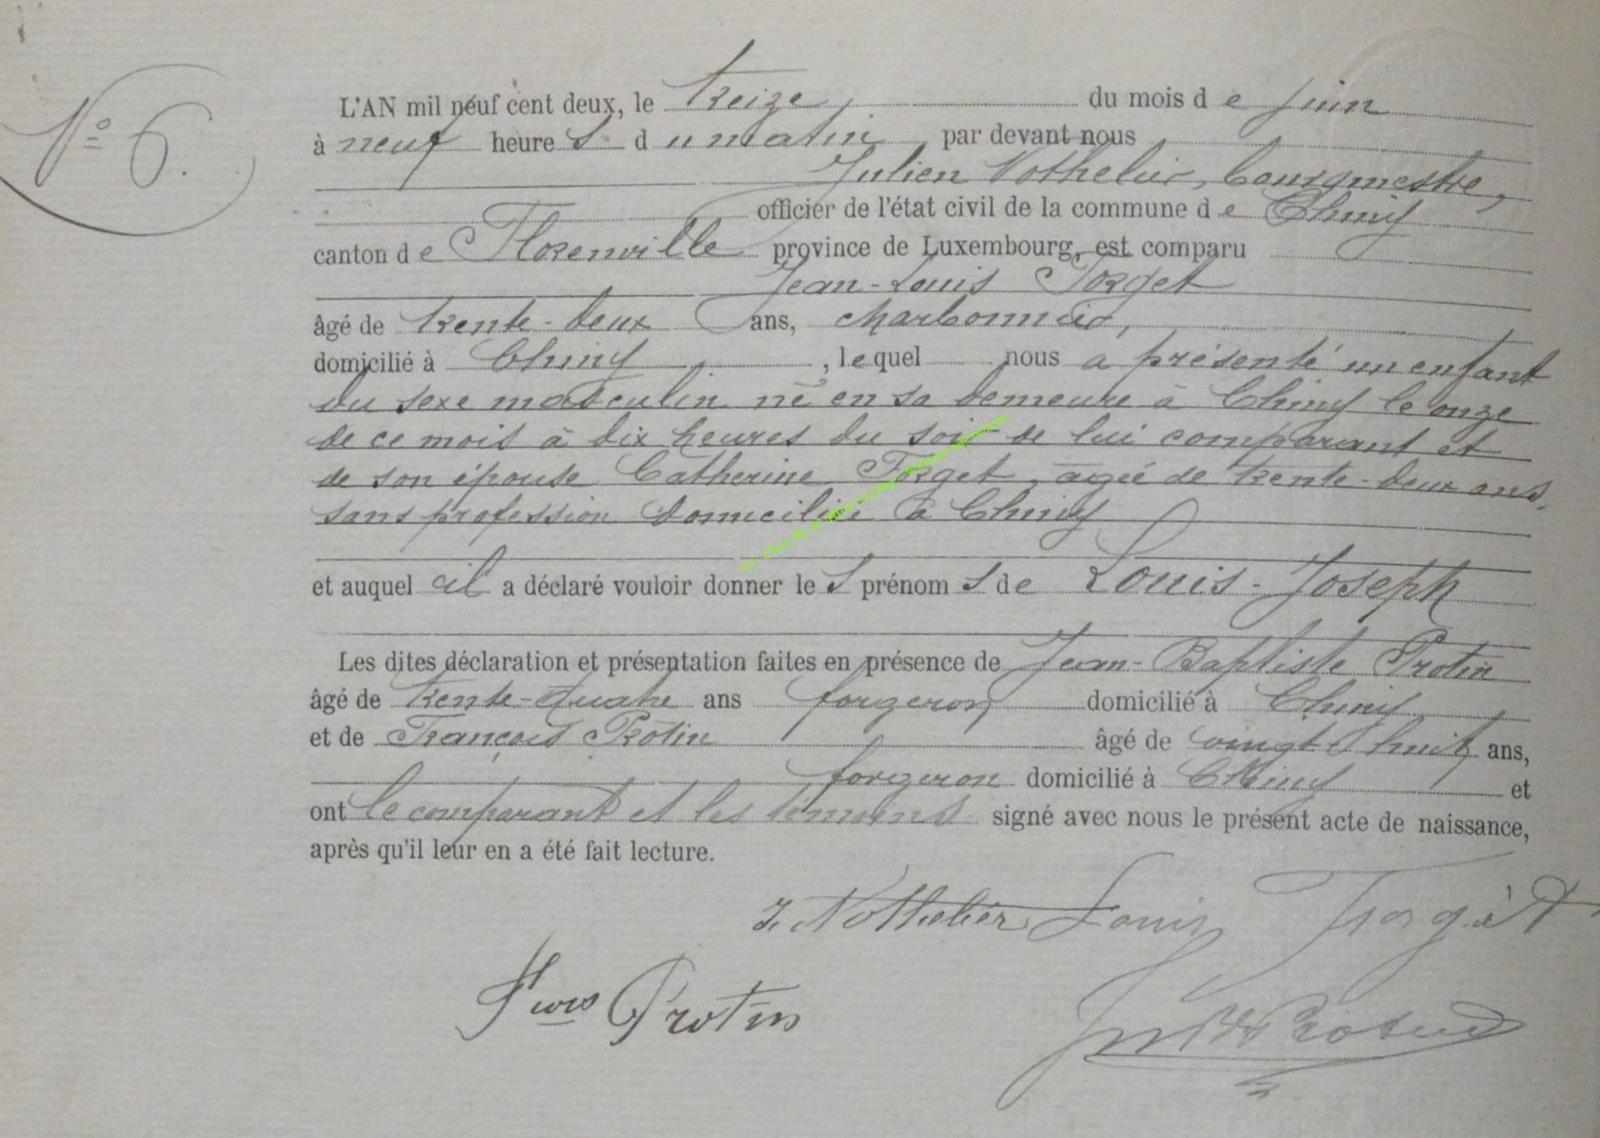 N° 6.
L'AN mil neuf cent deux, le treize, du mois de juin
à neuf heures du matin, par devant nous
Julien Nothelier, bourgmestre,
officier de l'état civil de la commune de Chiny
canton de Florenville province de Luxembourg, est comparu
Jean-Louis Forget
âgé de trente-deux ans, charbonnier,
domicilié à Chiny, lequel nous a présenté un enfant
du sexe masculin né en sa demeure à Chiny le onze
de ce mois à dix heures du soir de lui comparant et
de son épouse Catherine Forget, agée de trente-deux ans,
sans profession domiciliée à Chiny
et auquel il a déclaré vouloir donner les prénoms de Louis-Joseph
Les dites déclaration et présentation faites en présence de Jean-Baptiste Protin
âgé de trente-quatre ans forgeron, domicilié à Chiny
et de François Protin âgé de vingt huit ans,
forgeron domicilié à Chiny et
ont le comparant et les témoins signé avec nous le présent acte de naissance,
après qu'il leur en a été fait lecture.
J. Nothelier Louis Forgèt
Fçois Protin
J Bte Protin